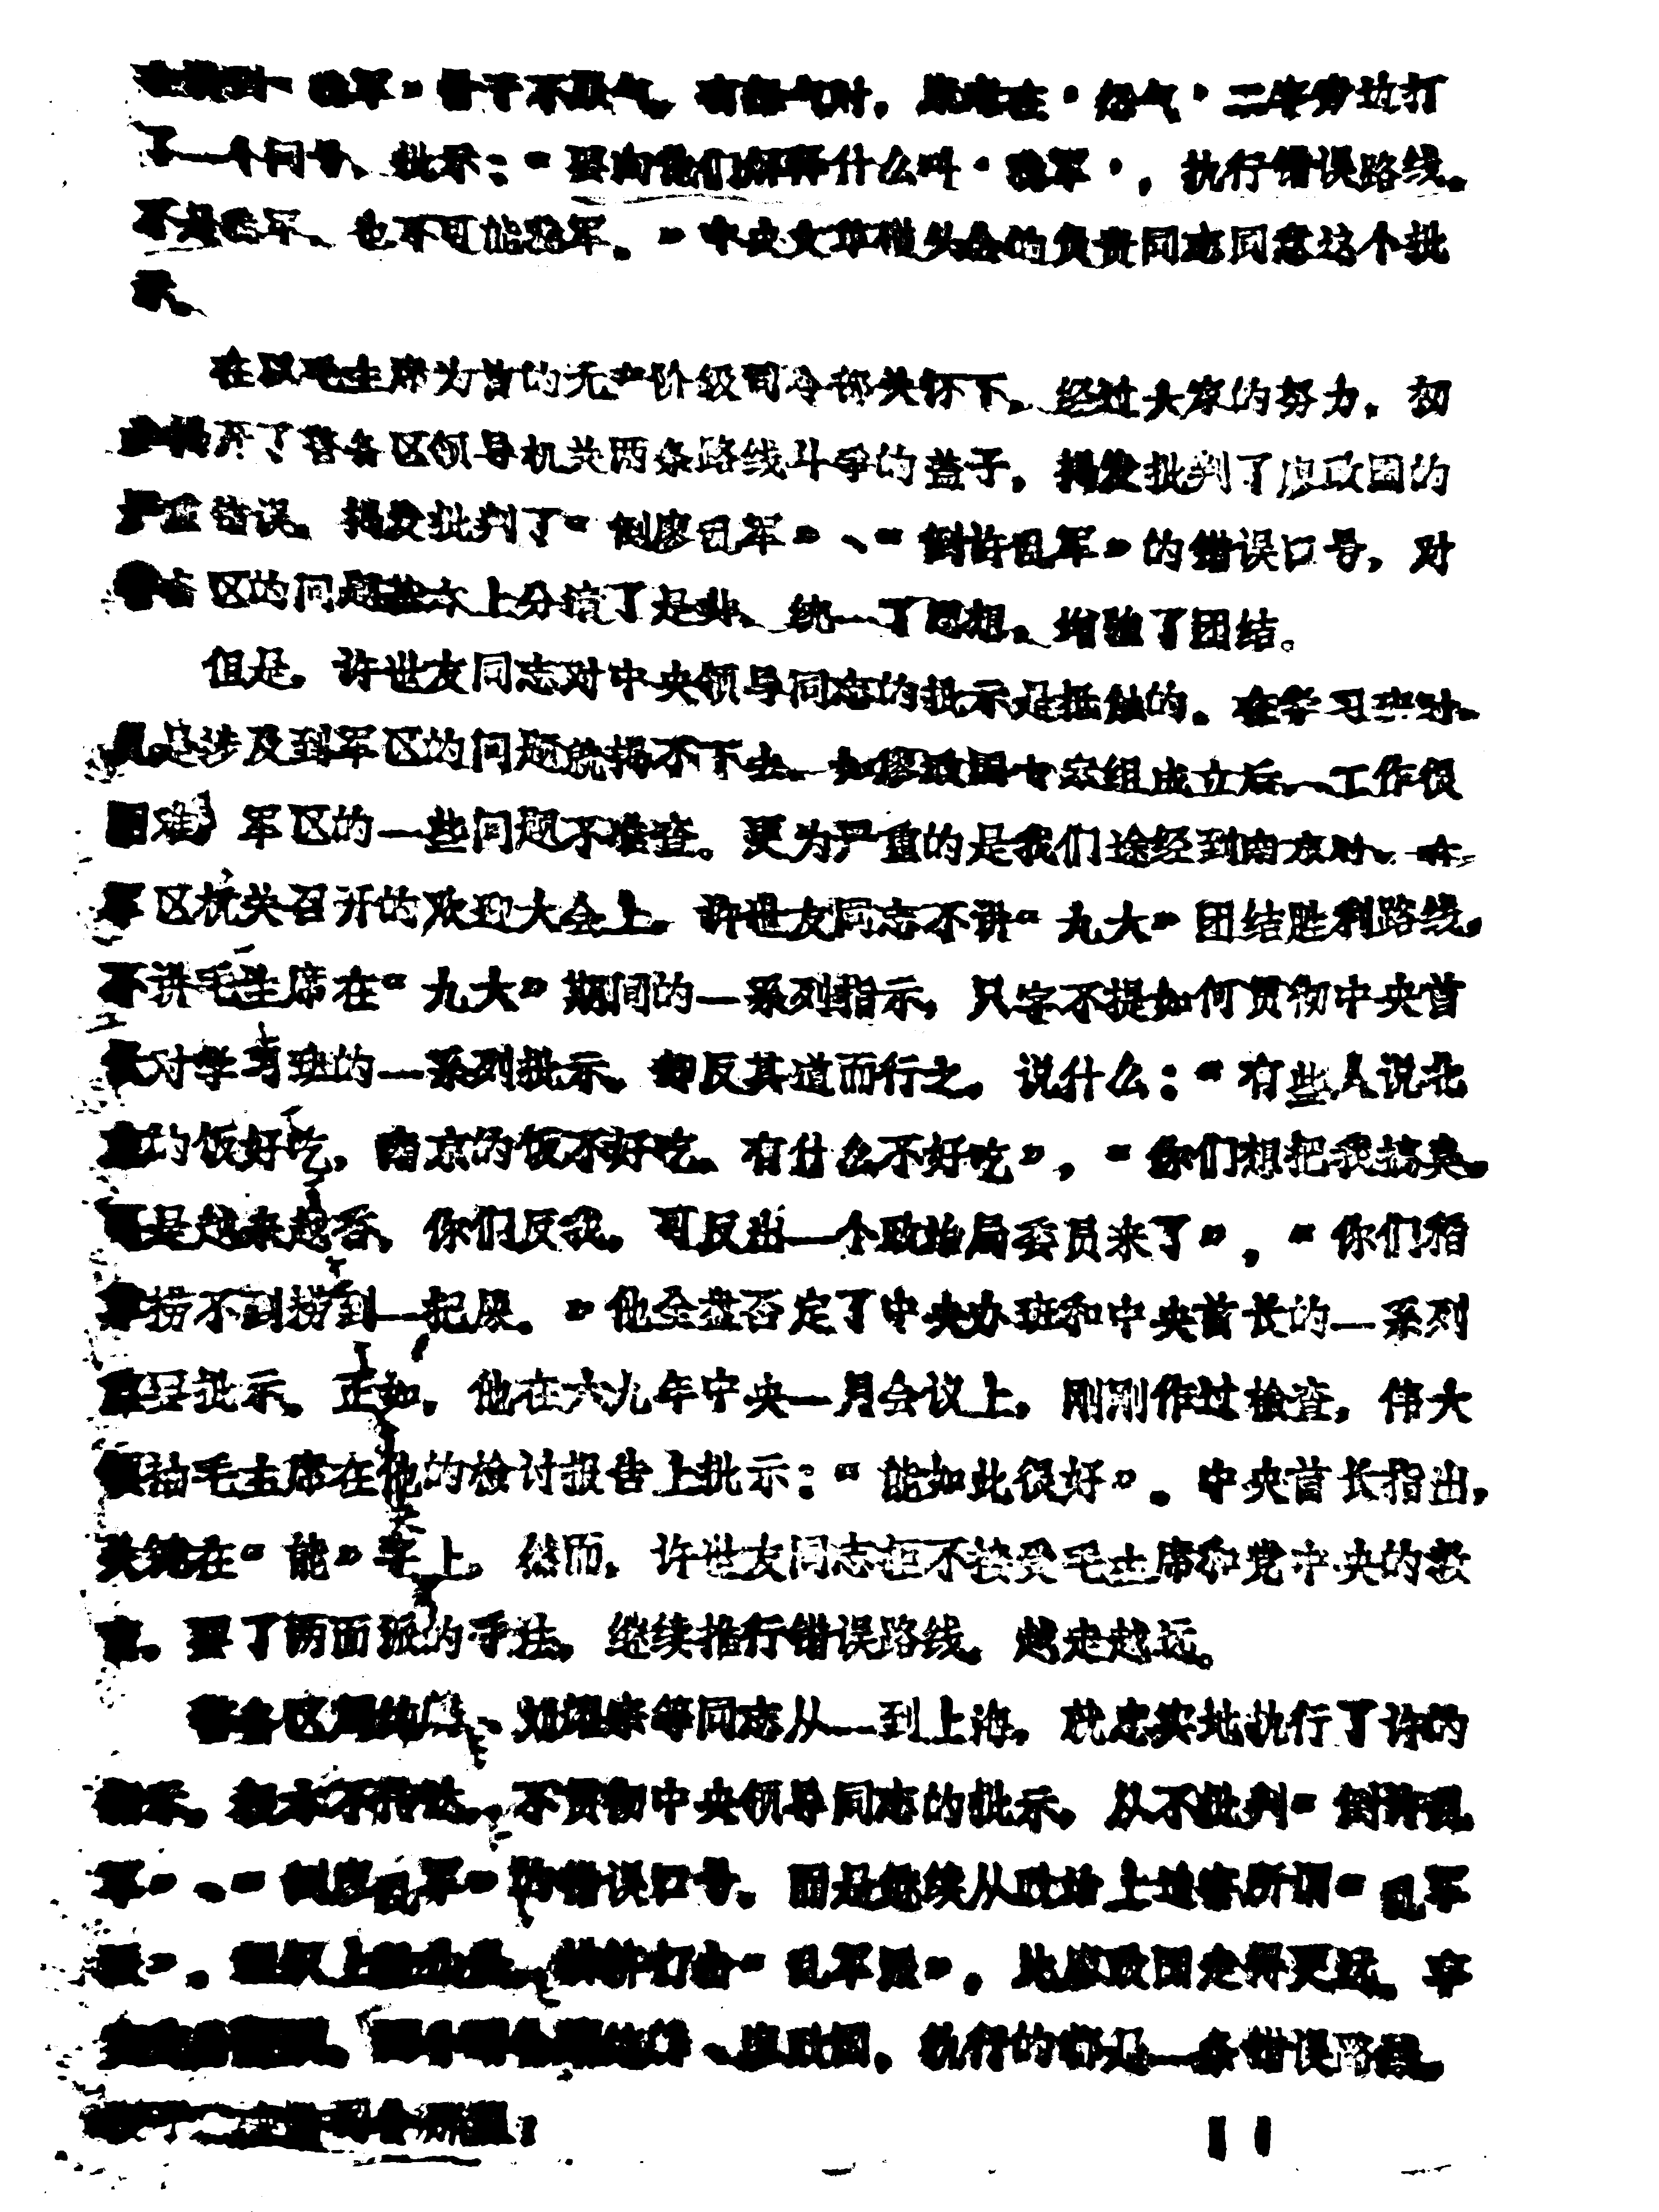 不服气，有怨气时，在“怨气”二字旁边打
了一个问号、批示：“要向他们解释什么叫“乱军”，执行错误路线。
不是乱军、也不可能乱军。”中央文革碰头会的负责同志同意这个批
示。
在以毛主席为首的无产阶级司令部关怀下、经过大家的努力，初
步揭开了警备区领导机关两条路线斗争的盖子，揭发批判了廖政国的
严重错误。揭发批判了“倒廖乱军”、“倒许乱军”的错误口号，对
警备区的问题基本上分清了是非、统一了思想、增强了团结。
但是，许世友同志对中央领导同志的批示是抵触的。在学习班时、
凡是涉及到军区的问题就揭不下去。如廖政国专案组成立后、工作很
困难，军区的一些问题不准查。更为严重的是我们途经到南京时、在
军区机关召开的欢迎大会上，许世友同志不讲“九大”团结胜利路线，
不讲毛主席在“九大”期间的一系列指示，只字不提如何贯彻中央首
长对学习班的一系列批示、却反其道而行之。说什么：“有些人说北
京的饭好吃，南京的饭不好吃、有什么不好吃”，“你们想把我搞臭，
可是越来越香，你们反我，可反出一个政治局委员来了”，“你们稻
草捞不到捞到一把尿。”他全盘否定了中央办班和中央首长的一系列
批示。正如，他在六九年中央一月会议上，刚刚作过检查，伟大
领袖毛主席在他的检讨报告上批示：“能如此很好”。中央首长指出，
关键在“能”字上，然而，许世友同志拒不接受毛主席和党中央的教
育，耍了两面派的手法，继续推行错误路线，越走越远。
警备区周纯麟、刘耀宗等同志从一到上海，就忠实地执行了许的
指示，根本不传达、不贯彻中央领导同志的批示，从不批判“倒许乱
军”、“倒廖乱军”的错误口号，而是继续从政治上迫害所谓“乱军
派”。组织上打击“乱军派”，比廖政国走得更远。
廖政国，执行的都是一条错误路线。
11